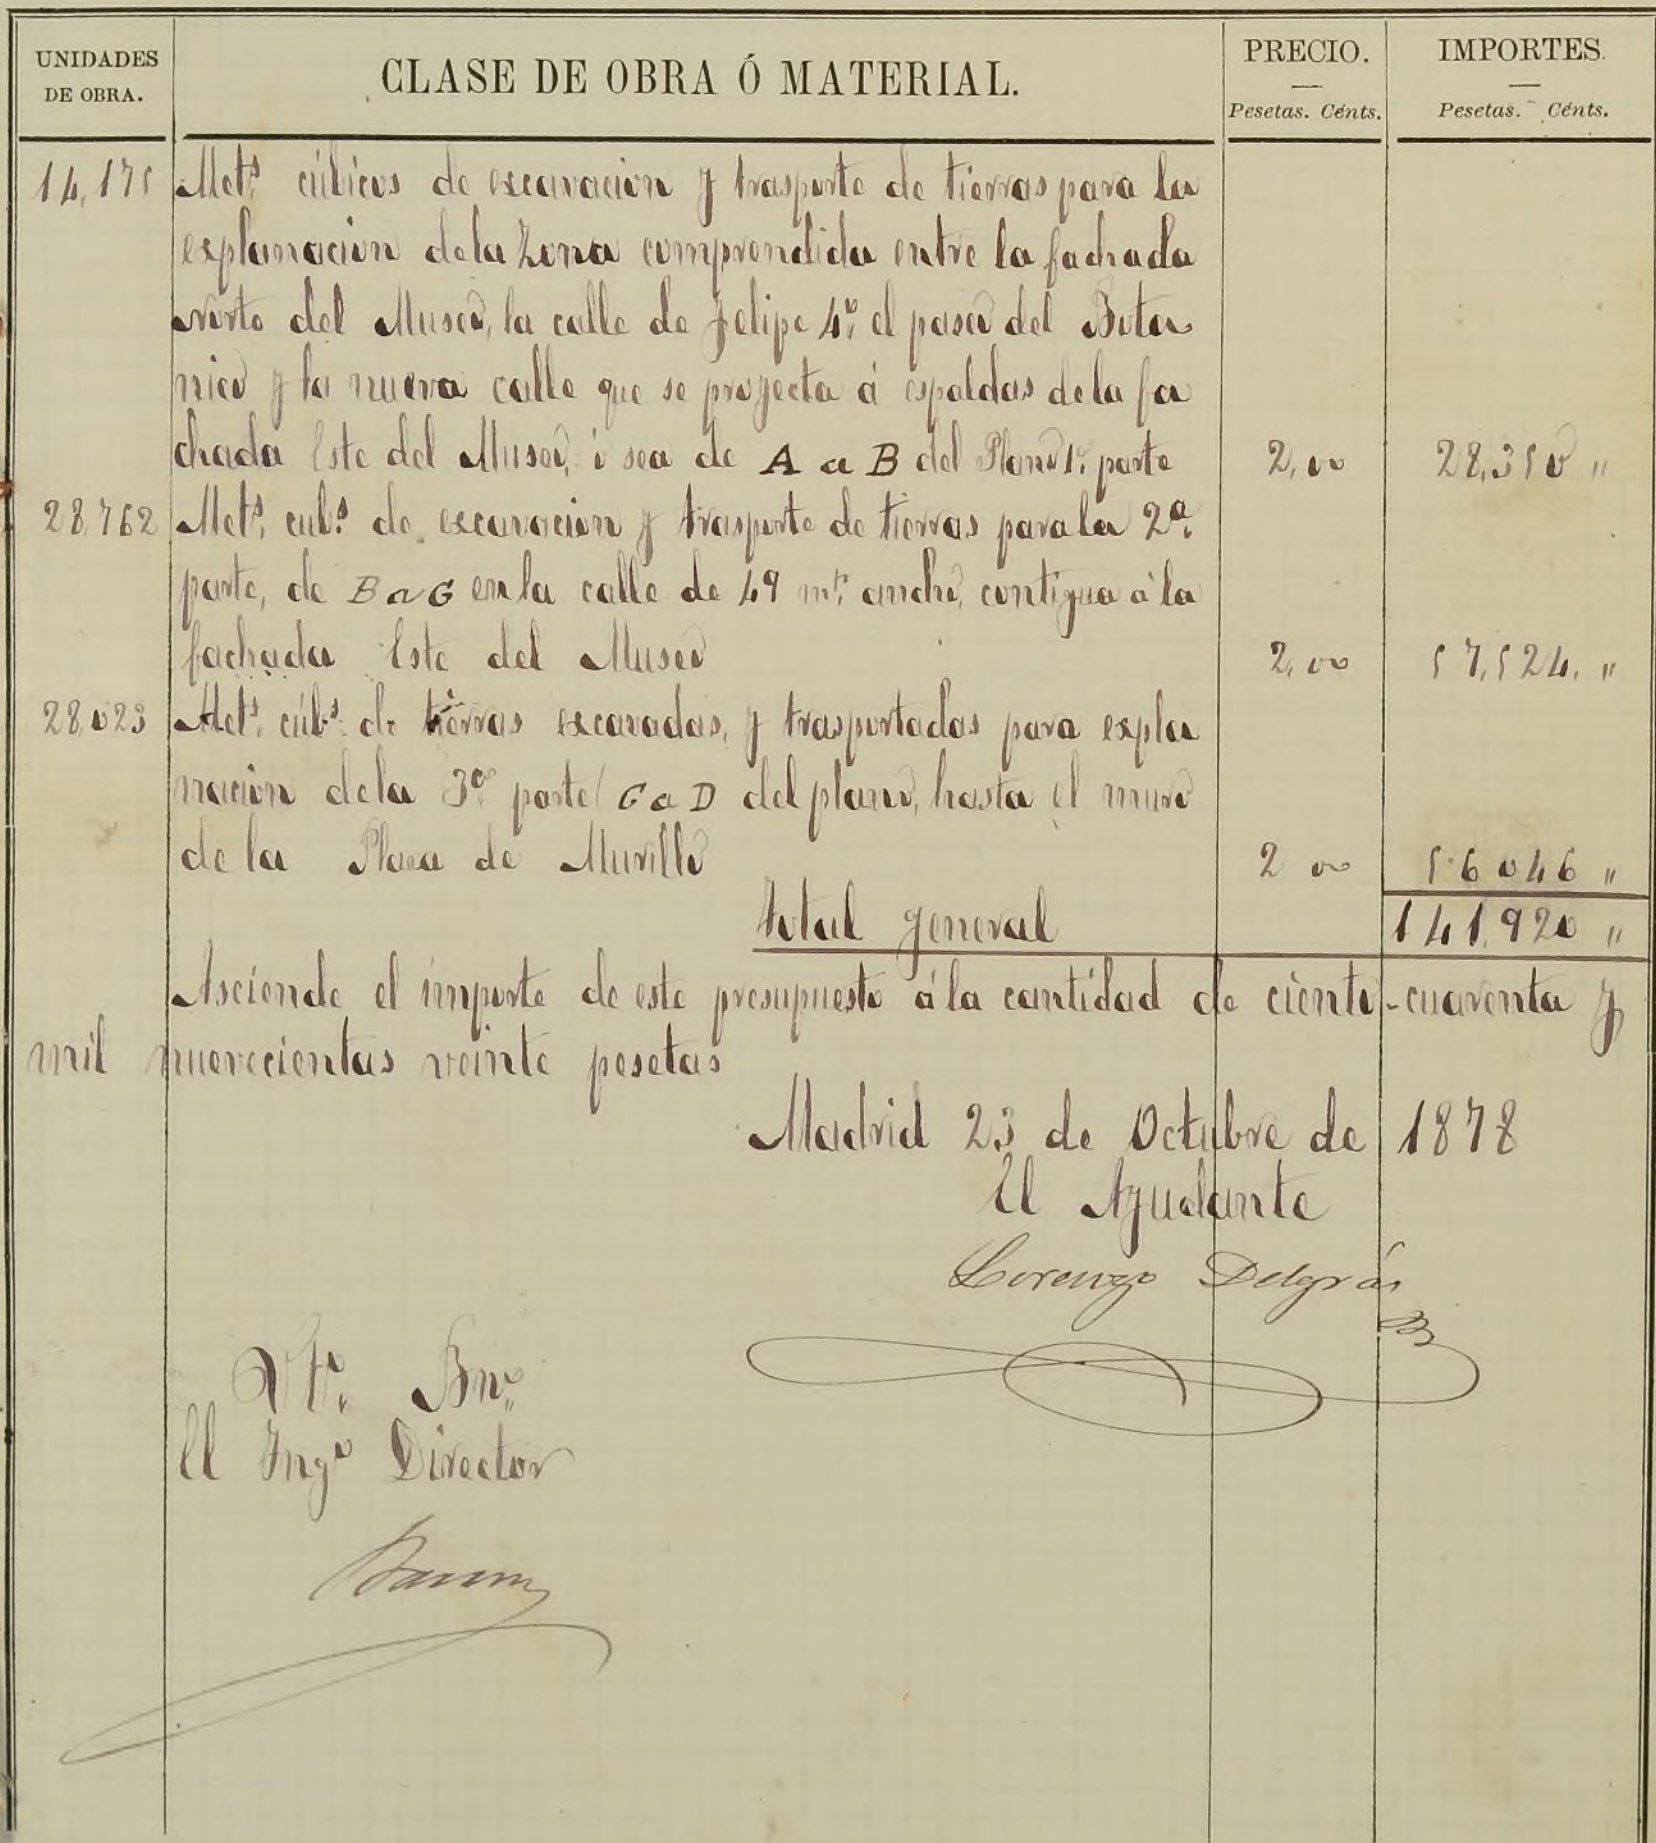 UNIDADES DE OBRA. CLASE DE OBRA Ó MATERIAL. PRECIO. IMPORTES.
Pesetas. Cénts. Pesetas. Cénts.
14,175 Metˢ cúbicos de escavacion y trasporte de tierras para la
esplanacion de la Zona comprendida entre la fachada
norte del Museo, la calle de Felipe 4º, el paseo del Bota
nico y la nueva calle que se proyecta á espaldas de la fa
chada Este del Museo, ó sea de A a B del Plano 1ª parte 2,00 28,350 "
28,762 Metˢ cubˢ de escavacion y trasporte de tierras para la 2ª
parte, de B a C en la calle de 49 mtˢ ancho, contigua á la
fachada Este del Museo 2,00 57,524, "
28,023 Metˢ cúbˢ de tierras escavadas, y trasportadas para espla
nacion de la 3ª parte C a D del plano, hasta el muro
de la Plaza de Murillo 2 00 56046 "
total general 141,920 "
Asciende el importe de este presupuesto á la cantidad de ciento-cuarenta y
mil nuevecientas veinte pesetas
Madrid 23 de Octubre de 1878
El Ayudante
Lorenzo Delgrás
Vtº Bnº
El Ingº Director